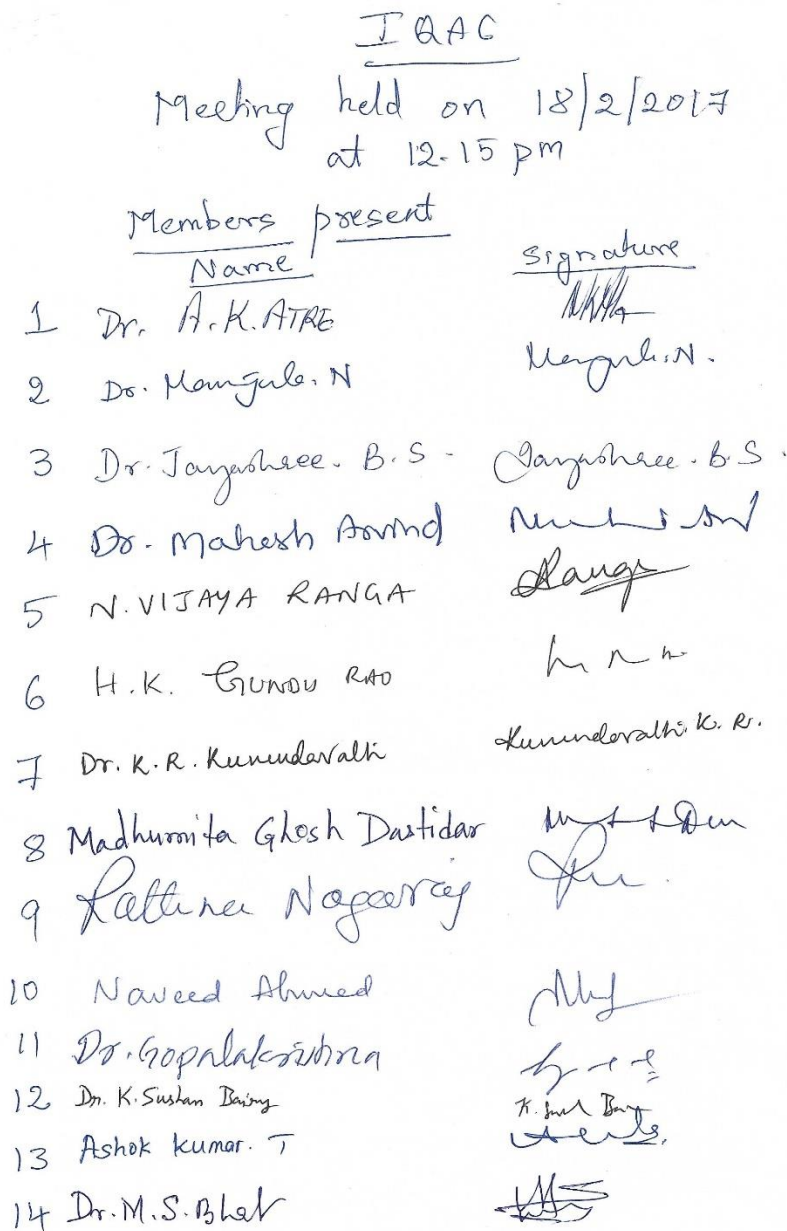 IQAC
Meeting held on 18/2/2017
at 12.15 pm
Members present
Name Signature
1 Dr. A.K. ATRE
2 Dr. Manjula. N Manjula.N.
3 Dr. Jayashree. B.S - Jayashree. B.S.
4 Dr. Mahesh Arvind
5 N. VIJAYA RANGA Ranga
6 H.K. GUNDU RAO
7 Dr. K.R. Kumudavalli Kumudavalli. K. R.
8 Madhumita Ghosh Dastidar
9 Rathna Nagaraj
10 Naveed Ahmed
11 Dr. Gopalakrishna
12 Dr. K. Sushan Bairy
13 Ashok kumar. T
14 Dr. M.S. Bhat